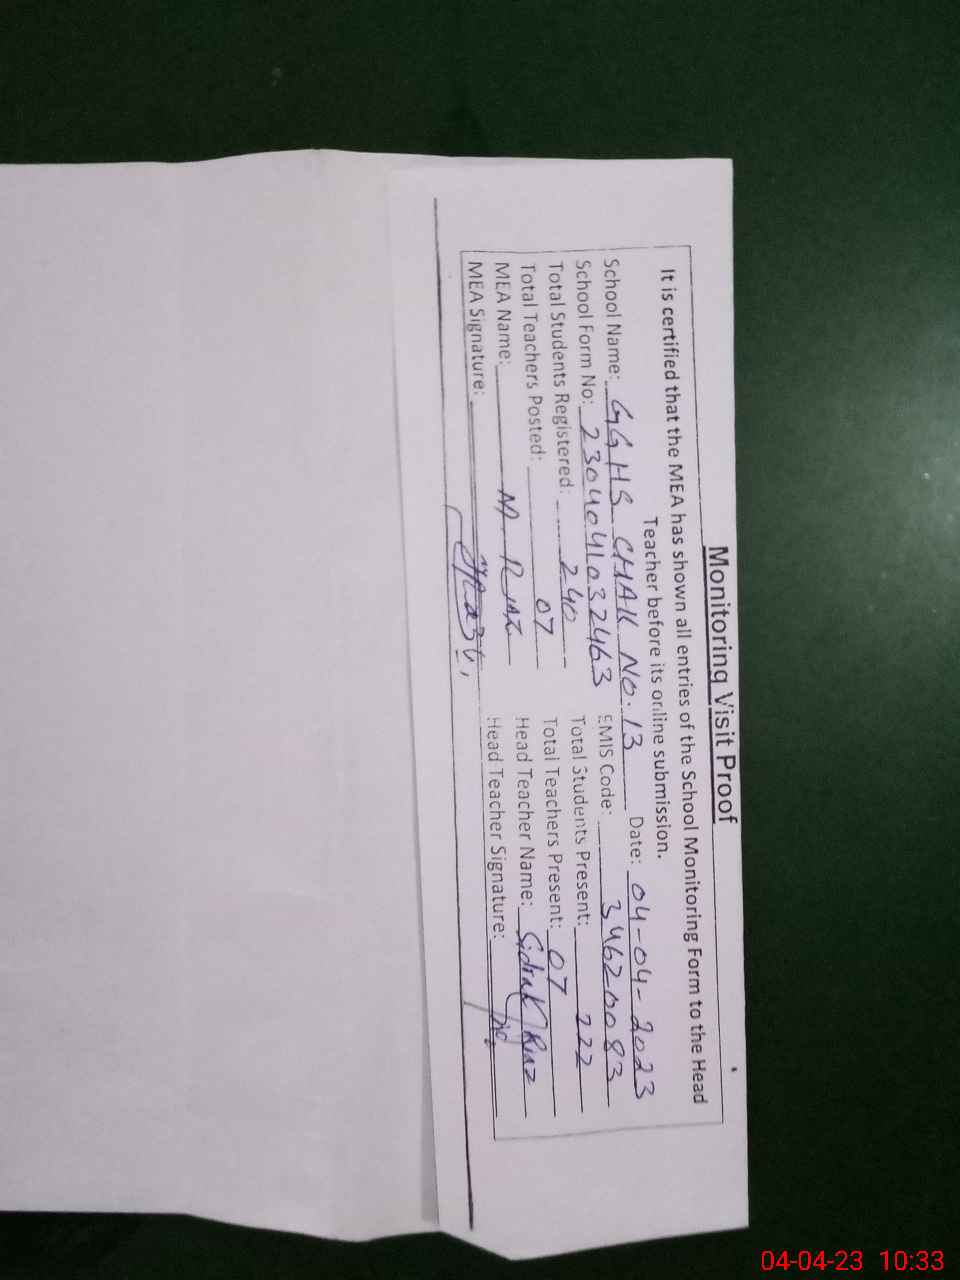 Monitoring Visit Proof
It is certified that the MEA has shown all entries of the School Monitoring Form to the Head
Teacher before its online submission.
School Name: GGHS CHAK NO.13 Date: 04-04-2023
School Form No: 2304041032463 EMIS Code: 34620083
Total Students Registered: 240 Total Students Present: 222
Total Teachers Posted: 07 Total Teachers Present: 07
MEA Name: M Riaz Head Teacher Name: Sidrah Riaz
MEA Signature: Head Teacher Signature:
04-04-23 10:33